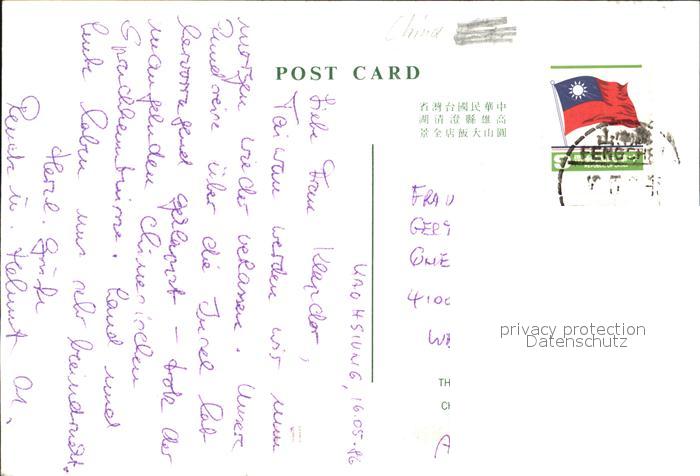 China
POST CARD
中華民國台灣省
高雄縣澄清湖
圓山大飯店全景
FENGSHAN
KAOHSIUNG, 16.05.86
Liebe Frau
Taiwan werden wir nun
morgen wieder verlassen. Unsere
Rundreise über die Insel hat
hervorragend geklappt – trotz der
mangelnden chinesischen
Sprachkenntnisse. Land und
Leute haben uns sehr beeindruckt.
Herzl. Grüße
Helmut
FRAU
GER
4100
TH
CH
privacy protection
Datenschutz